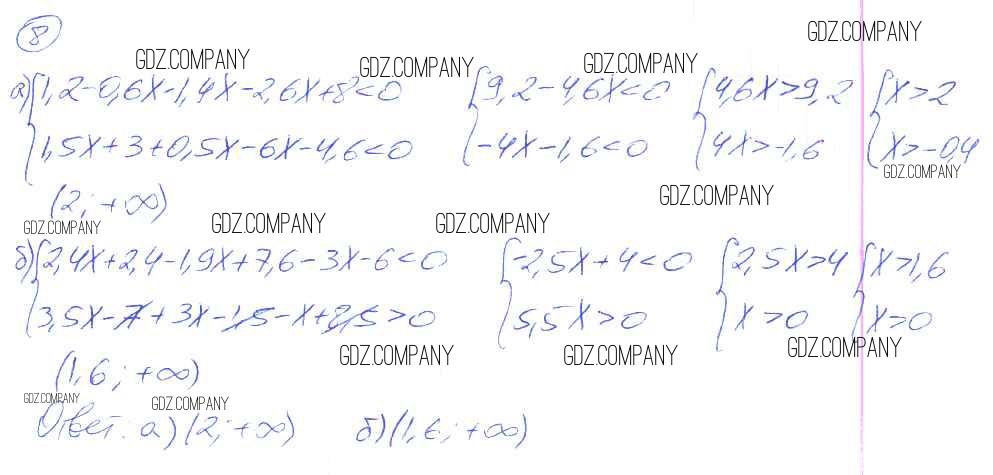 8
GDZ.COMPANY
GDZ.COMPANY GDZ.COMPANY GDZ.COMPANY
а) { 1,2-0,6x-1,4x-2,6x+8<0 { 9,2-4,6x<0 { 4,6x>9,2 { x>2
1,5x+3+0,5x-6x-4,6<0 -4x-1,6<0 4x>-1,6 x>-0,4
GDZ.COMPANY
(2; +∞) GDZ.COMPANY
GDZ.COMPANY GDZ.COMPANY GDZ.COMPANY
б) { 2,4x+2,4-1,9x+7,6-3x-6<0 { -2,5x+4<0 { 2,5x>4 { x>1,6
3,5x-7+3x-1,5-x+8,5>0 5,5x>0 x>0 x>0
GDZ.COMPANY GDZ.COMPANY GDZ.COMPANY
(1,6; +∞)
GDZ.COMPANY GDZ.COMPANY
Ответ: а) (2; +∞) б) (1,6; +∞)